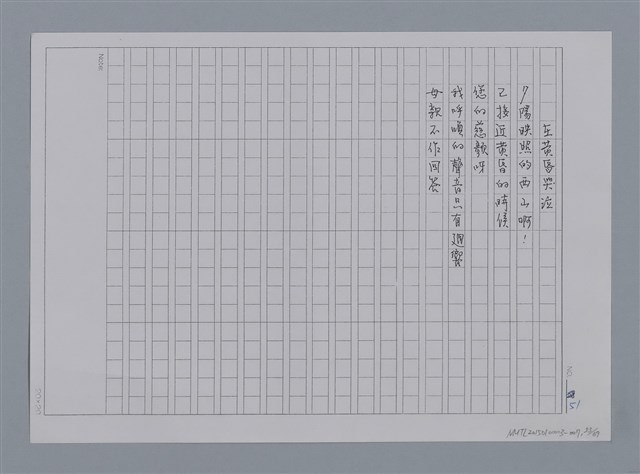 在黃昏哭泣
夕陽映照的西山啊！
已接近黃昏的時候
您的慈顏呀
我呼喚的聲音只有迴響
母親不作回答
Note
51